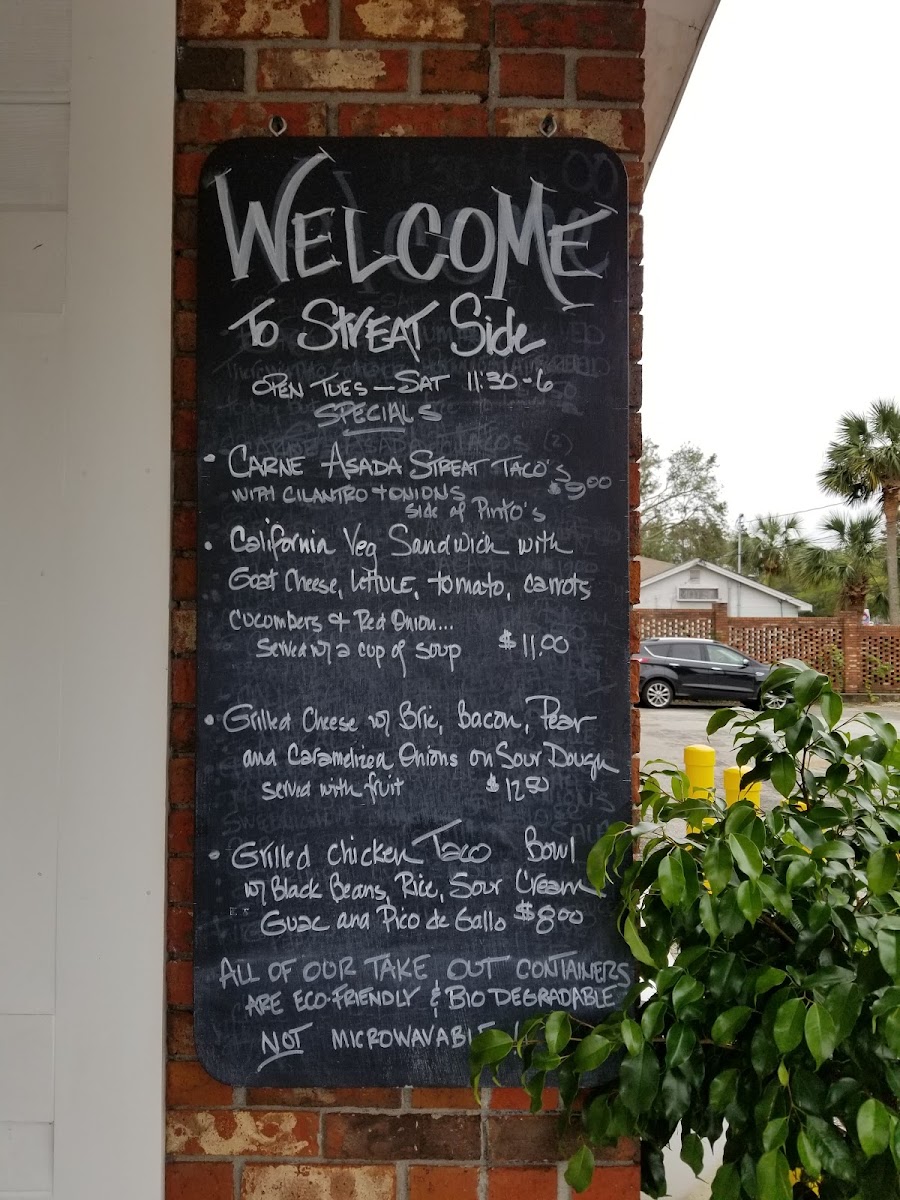 WELCOME
To StrEAT Side
OPEN TUES – SAT 11:30 - 6
SPECIALS
• CARNE ASADA STREAT TACO'S
WITH CILANTRO + ONIONS $9.00
Side of Pinto's
• California Veg Sandwich with
Goat Cheese, LETTUCE, tomato, carrots
Cucumbers & Red Onion...
Served w/ a cup of soup $11.00
• Grilled Cheese w/ Brie, Bacon, Pear
and Caramelized Onions on Sour Dough
served with fruit $12.50
• Grilled Chicken Taco Bowl
w/ Black Beans, Rice, Sour Cream
Guac and Pico de Gallo $8.00
ALL OF OUR TAKE OUT CONTAINERS
ARE ECO-FRIENDLY & BIO DEGRADABLE
NOT MICROWAVABLE